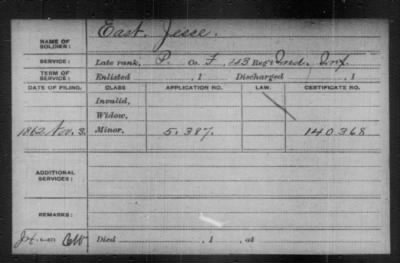 NAME OF SOLDIER: East, Jesse.
SERVICE: Late rank, P. Co. F, 43 Reg't Ind. Inf.
TERM OF SERVICE: Enlisted , 1 Discharged , 1
DATE OF FILING. CLASS APPLICATION NO. LAW. CERTIFICATE NO.
Invalid,
Widow,
1862 Nov. 3. Minor, 5.387. 140368
ADDITIONAL SERVICES:
REMARKS:
Died , 1 , at